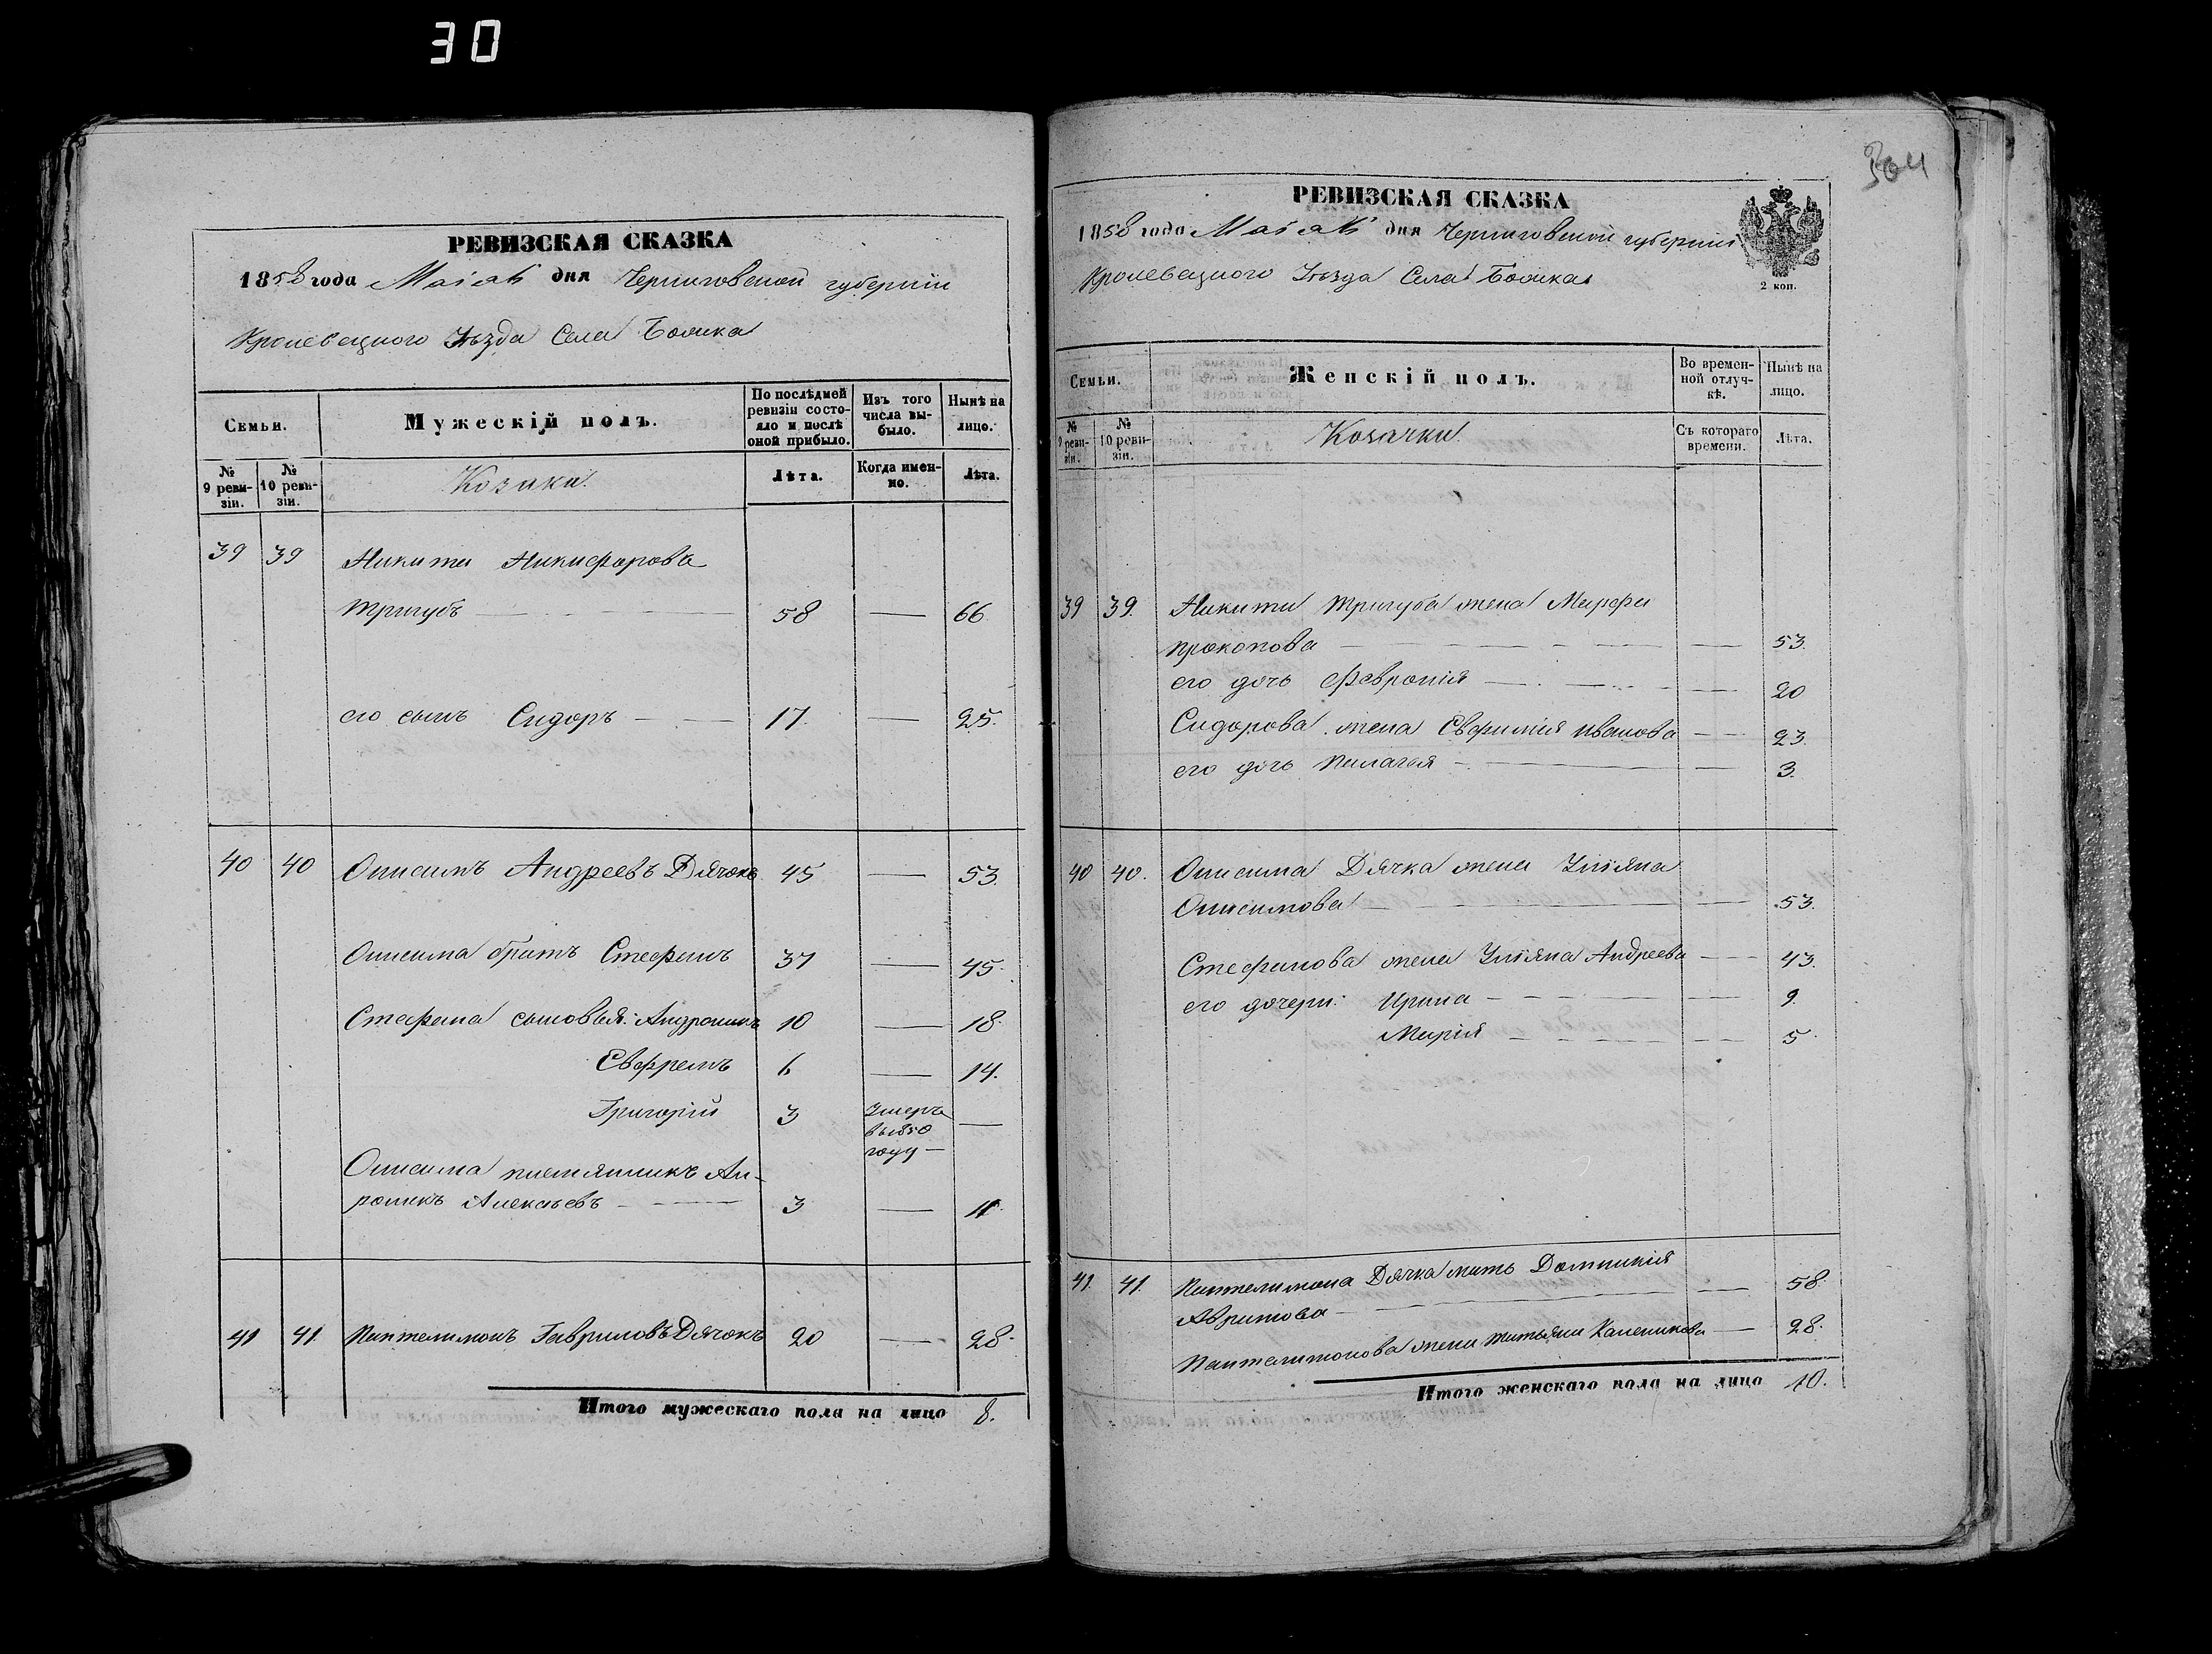 30
РЕВИЗСКАЯ СКАЗКА
1858 года Маія дня Черниговской губерніи
Кролевецкого Уѣзда Села
Семьи.
Мужескій полъ.
По послѣдней ревизіи состояло и послѣ оной прибыло.
Изъ того числа выбыло.
Нынѣ на лицо.
№ 9 ревизіи.
№ 10 ревизіи.
Козаки.
Лѣта.
Когда именно.
Лѣта.
39 39 Никита Никифоровъ
Тригубъ 58 — 66
его сынъ Сидоръ 17. — 25.
40 40 Онисимъ Андреевъ Дячокъ 45 — 53.
Онисима братъ Стефанъ 37 — 45.
Стефана сыновья: Андроникъ 10 — 18.
Евфремъ 6 — 14.
Григорій 3 умеръ —
въ 1850
году —
Онисима племянникъ Ан-
роникъ Алексѣевъ 3 — 11.
41 41 Пантелимонъ Гавриловъ Дячокъ 20 — 28.
Итого мужескаго пола на лицо 8.
304
РЕВИЗСКАЯ СКАЗКА
1858 года Маія дня Черниговской губерніи
Кролевецкого Уѣзда Села
2 коп.
Семьи.
Женскій полъ.
Во временной отлучкѣ.
Нынѣ на лицо.
№ 9 ревизіи.
№ 10 ревизіи.
Козачки.
Съ котораго времени.
Лѣта.
39 39. Никиты Тригуба жена Марфа
Прокопова — 53.
его дочь Февронія — 20
Сидорова жена Евфимія Иванова — 23.
его дочь Пилагея — 3.
40 40. Онисима Дячка жена Уліяна
Онисимова — 53.
Стефанова жена Уліяна Андреева — 43.
его дочери: Ирина — 9.
Марія — 5.
41. 41. Пантелимона Дячка мать Домникія
— 58.
Пантелимонова жена Татьяна Каленикова — 28.
Итого женскаго пола на лицо 10.